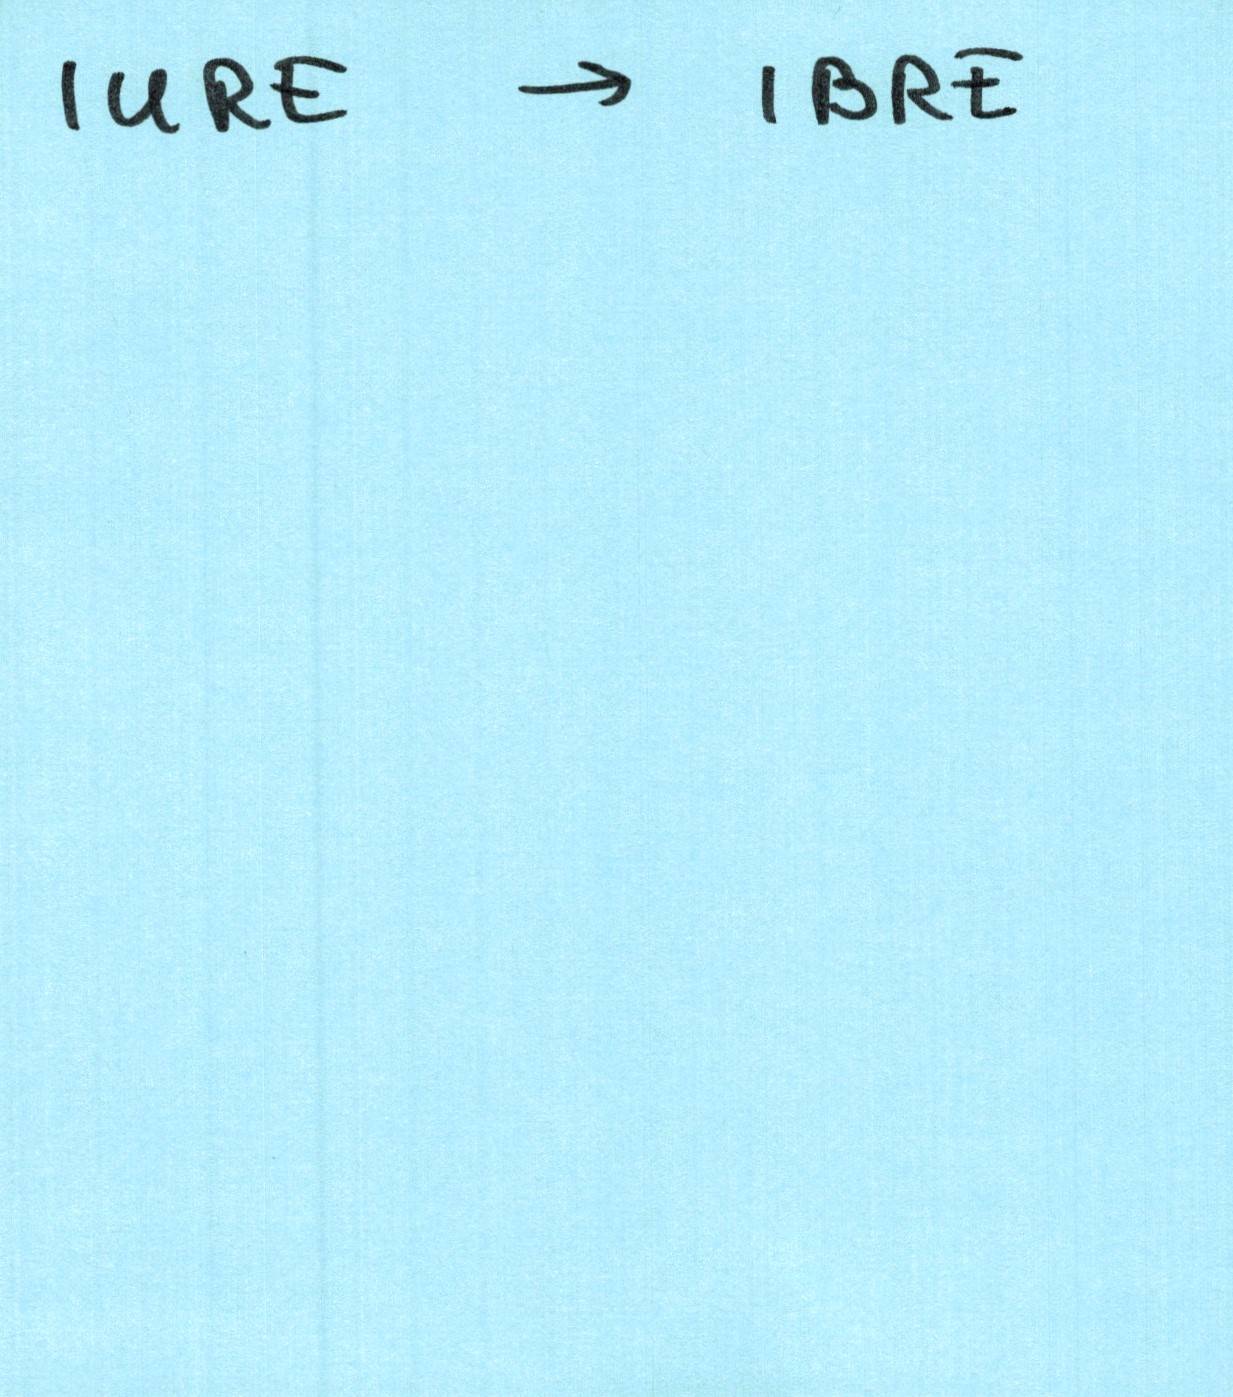 IURE → IBRE